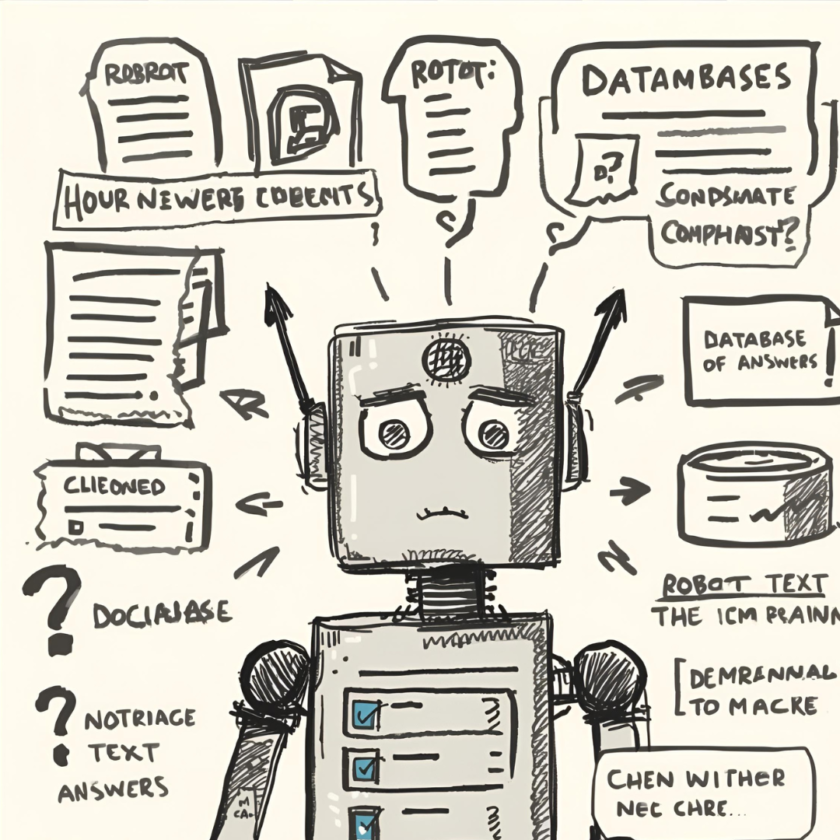 ROBROT
ROTOT:
DATAMBASES
D?
HOUR NEWERE COBENTS
CONDSMATE
COMPHAIST?
DATABASE
OF ANSWERS
CLIEONED
ROBOT TEXT
THE ICM
DOCIAJASE
DEMRANNAL
TO MACKE
NOTRIAGE
TEXT
ANSWERS
CHEN WITHER
NEC CHRE...